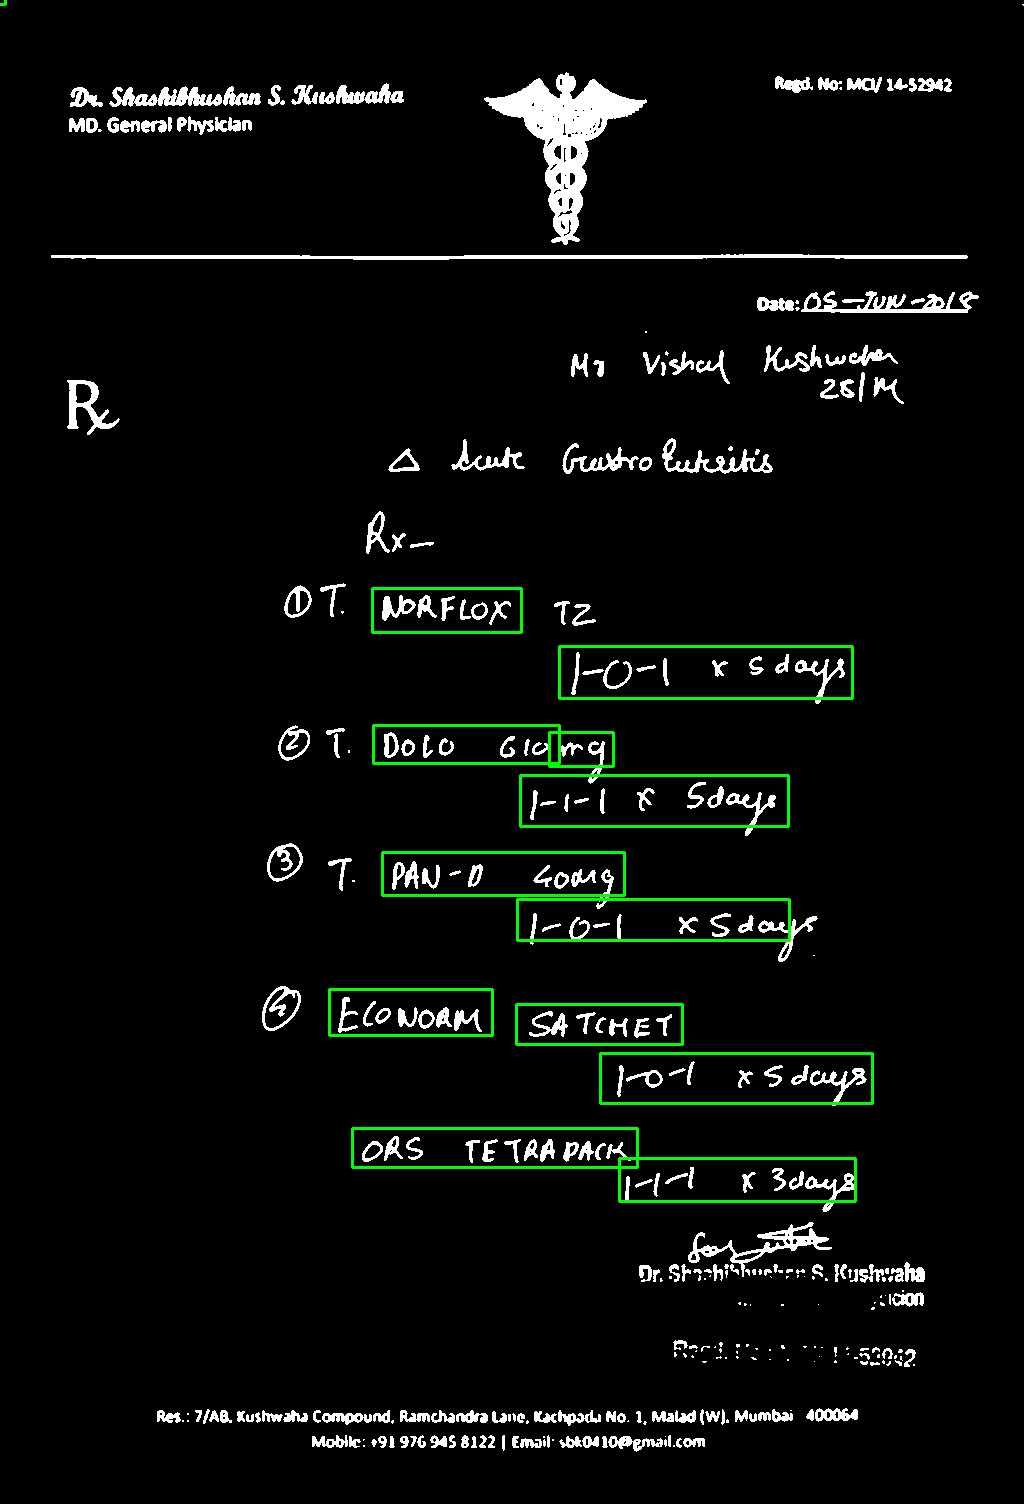 Dr. Shashibhushan S. Kushwaha
Regd. No: MCI/ 14-52942
MD. General Physician
Date: 05-JUN-2018
Mr Vishal Kushwaha
28/M
Rx
Δ Acute Gastro Enteritis
Rx-
① T. NORFLOX TZ
1-0-1 x 5 days
② T. DOLO 610mg
1-1-1 x 5days
③ T. PAN-D 40mg
1-0-1 x 5days
④ ECONORM SATCHET
1-0-1 x 5days
ORS TETRAPACK
1-1-1 x 3days
Dr. Shashibhushan S. Kushwaha
Regd. 14-52942
Res.: 7/AB, Kushwaha Compound, Ramchandra Lane, Kachpada No. 1, Malad (W), Mumbai 400064
Mobile: +91 976 945 8122 | Email: sbk0410@gmail.com